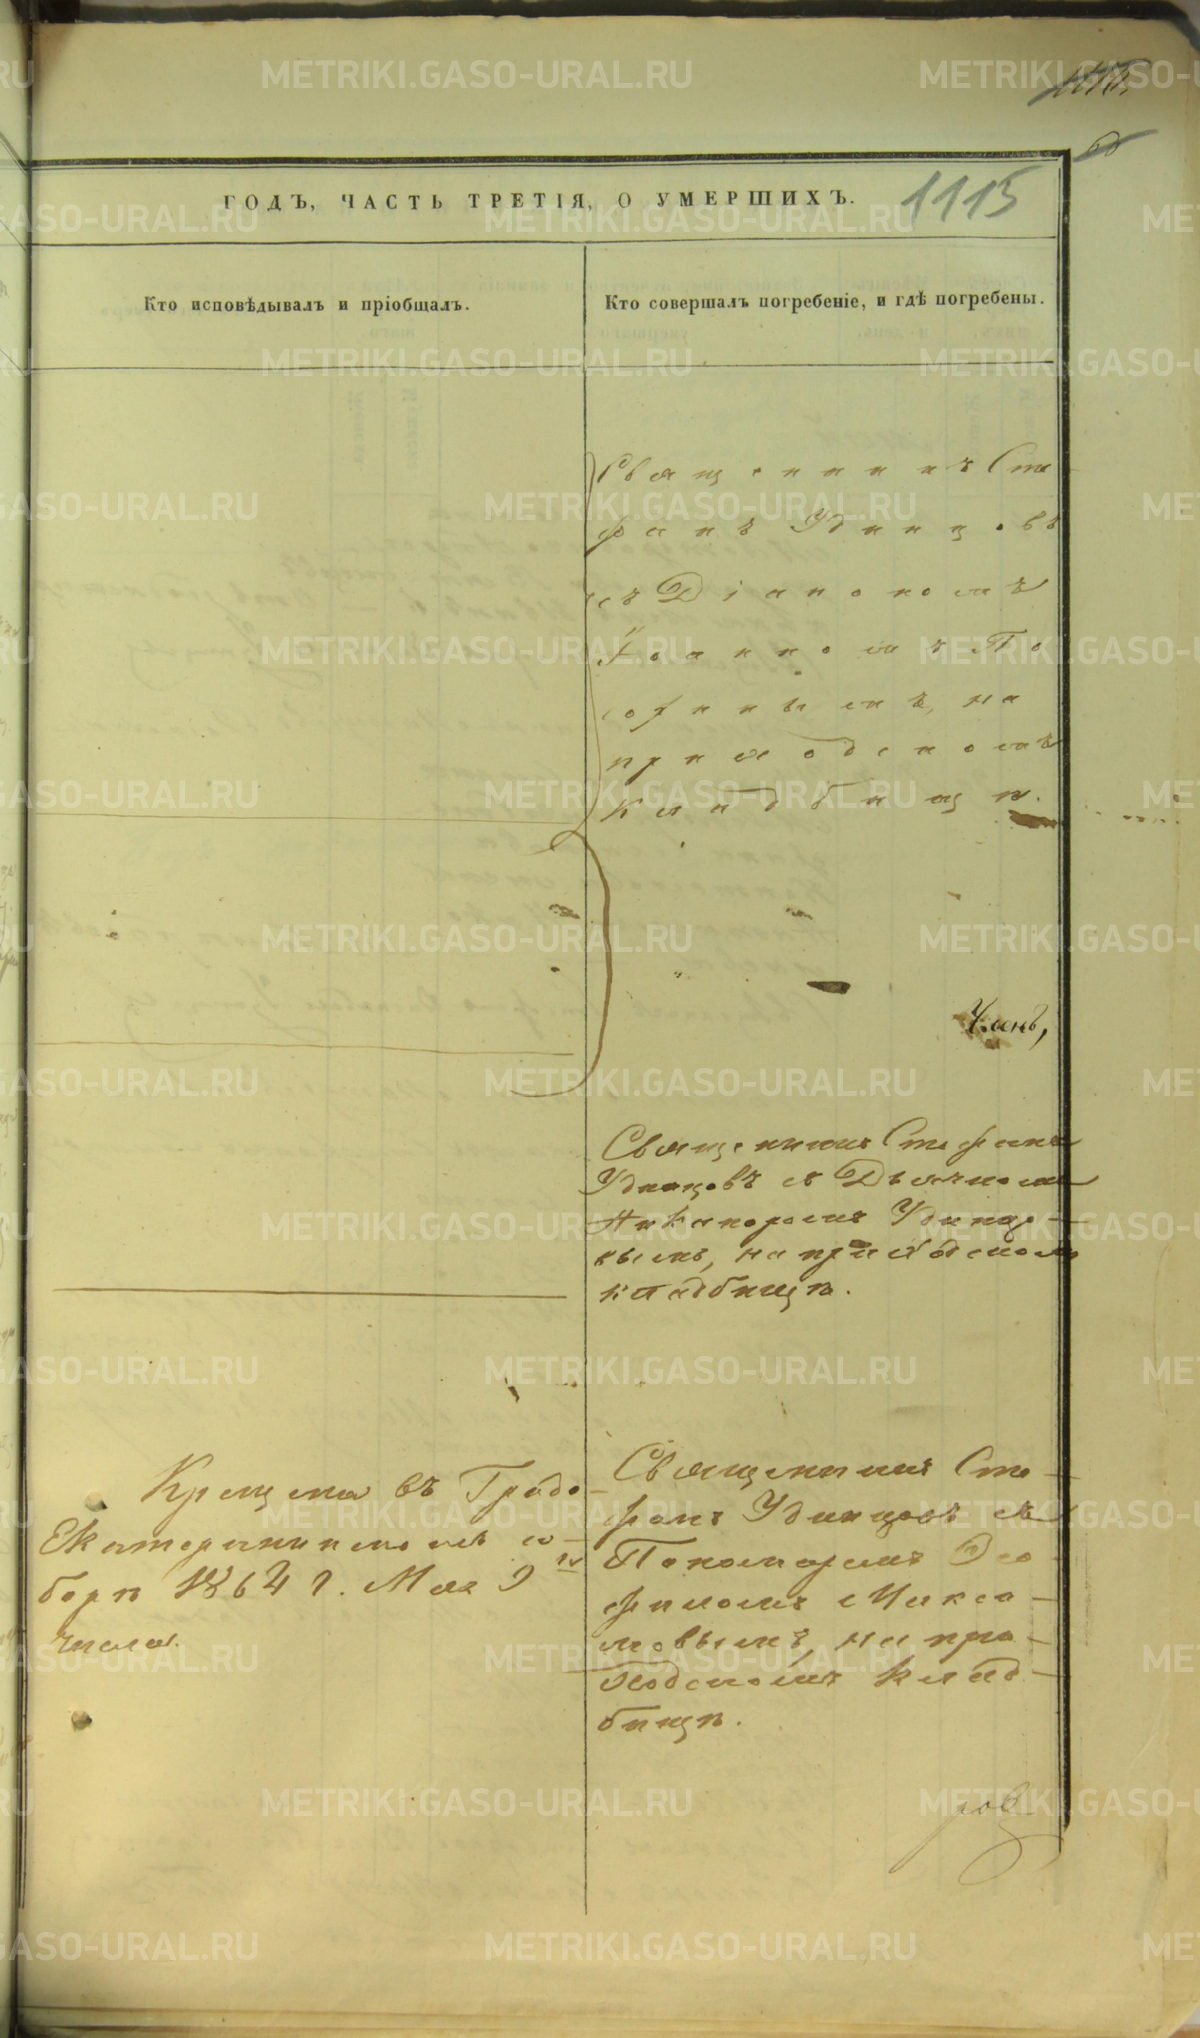 1115
ГОДЪ, ЧАСТЬ ТРЕТІЯ, О УМЕРШИХЪ.
Кто исповѣдывалъ и пріобщалъ.
Кто совершалъ погребеніе, и гдѣ погребены.
Священникъ Сте
фанъ Удинцовъ
съ Діакономъ
Іоанномъ По
номъ, на
приходскомъ
кладбищѣ.
Членъ,
Священникъ Стефанъ
Удинцовъ съ Дьячкомъ
Никаноромъ Удинцо-
вымъ, на приходскомъ
кладбищѣ.
Крещена въ Градо-
Екатерининскомъ со-
борѣ 1864 г. Мая 9го
числа.
Священникъ Сте-
фанъ Удинцовъ съ
Пономаремъ Ѳео-
филомъ
на при-
ходскомъ клад-
бищѣ.
ров
METRIKI.GASO-URAL.RU